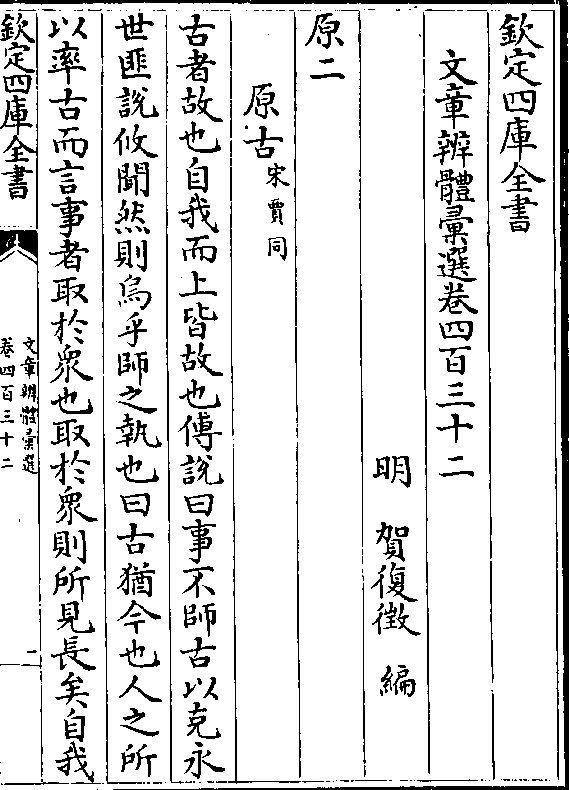 欽定四庫全書
文章辨體彚選卷四百三十二
明 賀復徵 編
原二
原古宋賈同
古者故也自我而上皆故也傅說曰事不師古以克永
世匪說攸聞然則烏乎師之執也曰古猶今也人之所
以率古而言事者取於衆也取於衆則所見長矣自我
欽定四庫全書
文章辨體彚選
卷四百三十二
一